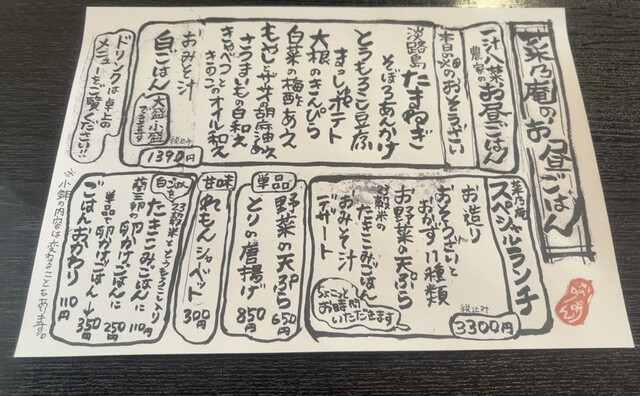 菜乃庵のお昼ごはん
一汁八菜お昼ごはん
農家の
本日の畑のおそうざい
淡路島たまねぎ
そぼろあんかけ
とうもろこし豆腐
まっしゅポテト
大根のきんぴら
白菜の梅酢あえ
もやしとササミの胡麻油あえ
さつまいもの白和え
キャベツときのこのオイル和え
おみそ汁
白ごはん
大盛・小盛できます
税込み
1390円
ドリンクは卓上の
メニューをご覧ください!!
菜乃庵
スペシャルランチ
税込み
3300円
お造り
おそうざいと
おかず11種類
お野菜の天ぷら
23穀米の
たきこみごはん
おみそ汁
デザート
ちょこっとお時間いただきます
単品
野菜の天ぷら
650円
とりの唐揚げ
850円
甘味
れもんシャーベット
300円
白ごはんを
23穀米ととうもろこし
たきこみごはんに
110円
蘭王卵の卵かけごはんに
250円
単品で卵かけごはん
350円
ごはんおかわり
110円
※小鉢の内容は変わることもあります。